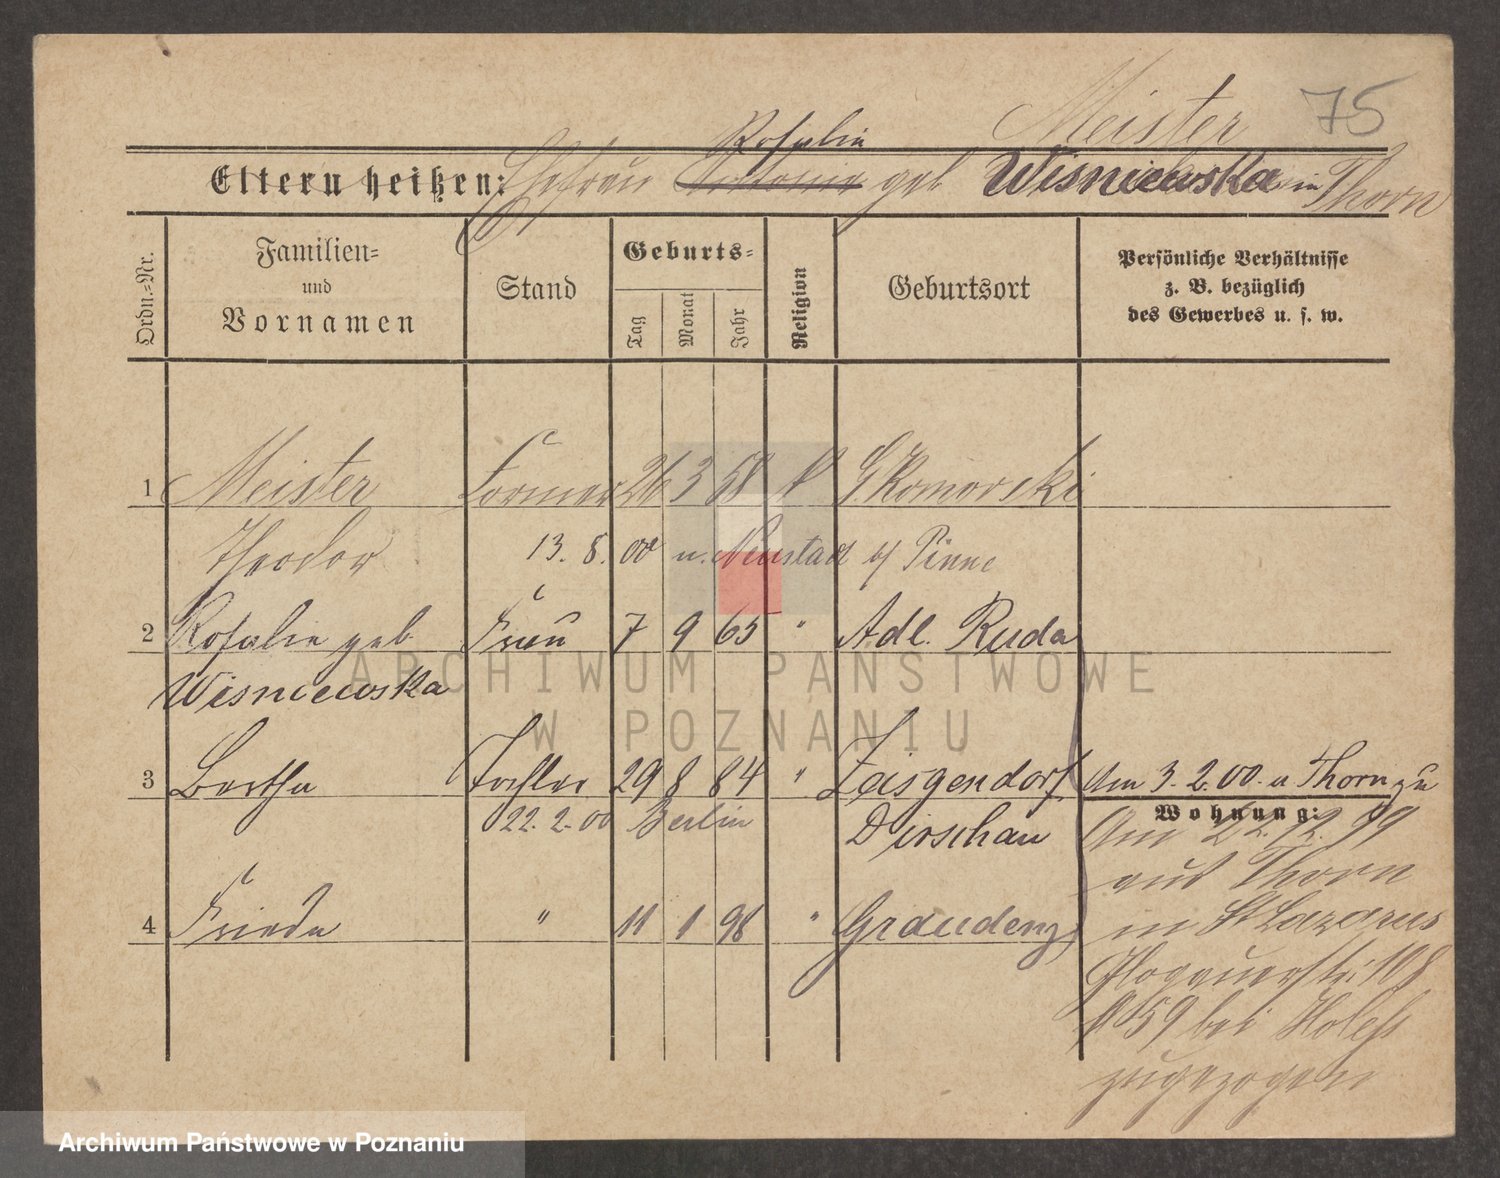 Meister 75
Rosalie
Eltern heißen: Ehefrau Antonie geb Wisniewska in Thorn
Ordn.-Nr.
Familien-
und
Vornamen
Stand
Geburts-
Tag
Monat
Jahr
Religion
Geburtsort
Persönliche Verhältnisse
z. B. bezüglich
des Gewerbes u. s. w.
1 Meister Former 26 3 58 k G. Komorski
Theodor 13. 8. 00 n. Neustadt b/ Pinne
2 Rosalie geb Frau 7 9 65 " Adl. Ruda
Wisniewska
3 Bertha Tochter 29 8 84 " Zeisgendorf Am 3. 2. 00. n Thorn zu
22. 2. 00 Berlin Dirschau
Wohnung:
Am 22. 12. 99
aus Thorn
4 Frieda " 11 1 98 " Graudenz
in St Lazarus
Glogauerstr. 108
159 bei
zugezogen
ARCHIWUM PAŃSTWOWE
W POZNANIU
Archiwum Państwowe w Poznaniu